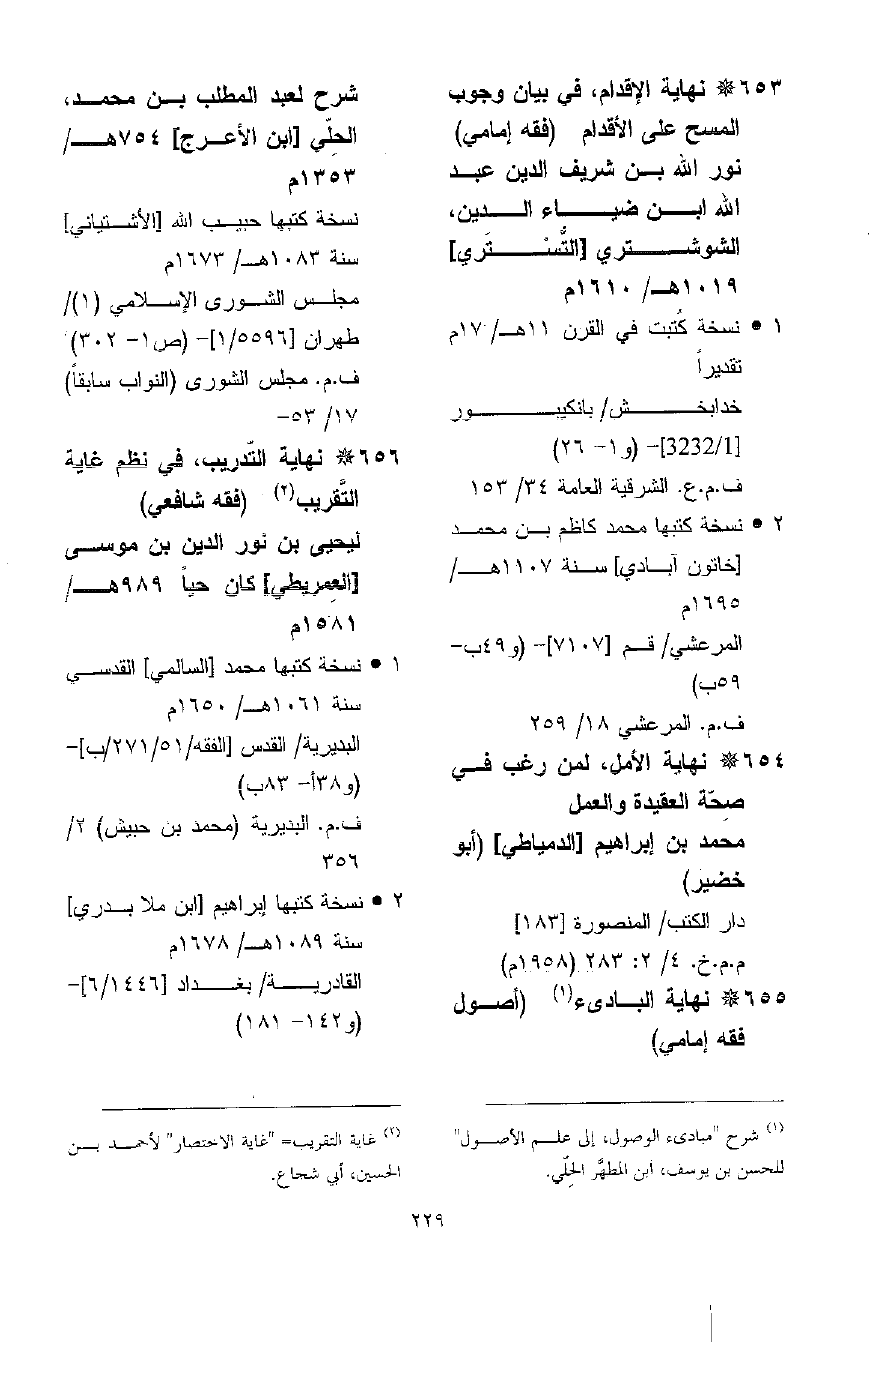 ٦٥٣ ❋ نهاية الإقدام، في بيان وجوب
المسح على الأقدام (فقه إمامي)
نور الله بـن شريف الدين عبـد
الله ابـــن ضيـــاء الـــدين،
الشوشـــتري [التُّسْـــتَري]
١٠١٩هـ/ ١٦١٠م
١ • نسخة كُتبت في القرن ١١هـ/ ١٧م
تقديراً
خدابخـــش/ بانكيبـــور
[3232/1]- (و١- ٢٦)
ف.م.ع. الشرقية العامة ٣٤/ ١٥٣
٢ • نسخة كتبها محمد كاظم بـن محمـد
[خاتون آبـادي] سـنة ١١٠٧هـ/
١٦٩٥م
المرعشي/ قـم [٧١٠٧]- (و٤٩ب-
٥٩ب)
ف.م. المرعشي ١٨/ ٢٥٩
٦٥٤ ❋ نهاية الأمل، لمن رغب فـي
صحّة العقيدة والعمل
محمد بن إبراهيم [الدمياطي] (أبو
خضير)
دار الكتب/ المنصورة [١٨٣]
م.م.خ. ٤/ ٢: ٢٨٣ (١٩٥٨م)
٦٥٥ ❋ نهاية البـادىء(١) (أصـول
فقه إمامي)
شرح لعبد المطلب بـن محمـد،
الحلّي [ابن الأعـرج] ٧٥٤هـ/
١٣٥٣م
نسخة كتبها حبيـب الله [الأشـتياني]
سنة ١٠٨٣هـ/ ١٦٧٣م
مجلـس الشـورى الإسـلامي (١)/
طهران [١/٥٥٩٦]- (ص١- ٣٠٢)
ف.م. مجلس الشورى (النواب سابقاً)
١٧/ ٥٣-
٦٥٦ ❋ نهاية التّدريب، في نظم غاية
التَّقريب(٢) (فقه شافعي)
ليحيى بن نور الدين بن موسـى
[العِمريطي] كان حياً ٩٨٩هـ/
١٥٨١م
١ • نسخة كتبها محمد [السالمي] القدسـي
سنة ١٠٦١هـ/ ١٦٥٠م
البديرية/ القدس [الفقه/٢٧١/٥١/ب]-
(و٣٨أ- ٨٣ب)
ف.م. البديرية (محمد بن حبيش) ٢/
٣٥٦
٢ • نسخة كتبها إبراهيم [ابن ملا بـدري]
سنة ١٠٨٩هـ/ ١٦٧٨م
القادريـــة/ بغـــداد [٦/١٤٤٦]-
(و١٤٢- ١٨١)
(١) شرح "مبادىء الوصول، إلى علـم الأصـول"
للحسن بن يوسف، ابن المطهَّر الحلّي.
(٢) غاية التقريب= "غاية الاختصار" لأحمـد بـن
الحسين، أبي شجاع.
٢٢٩